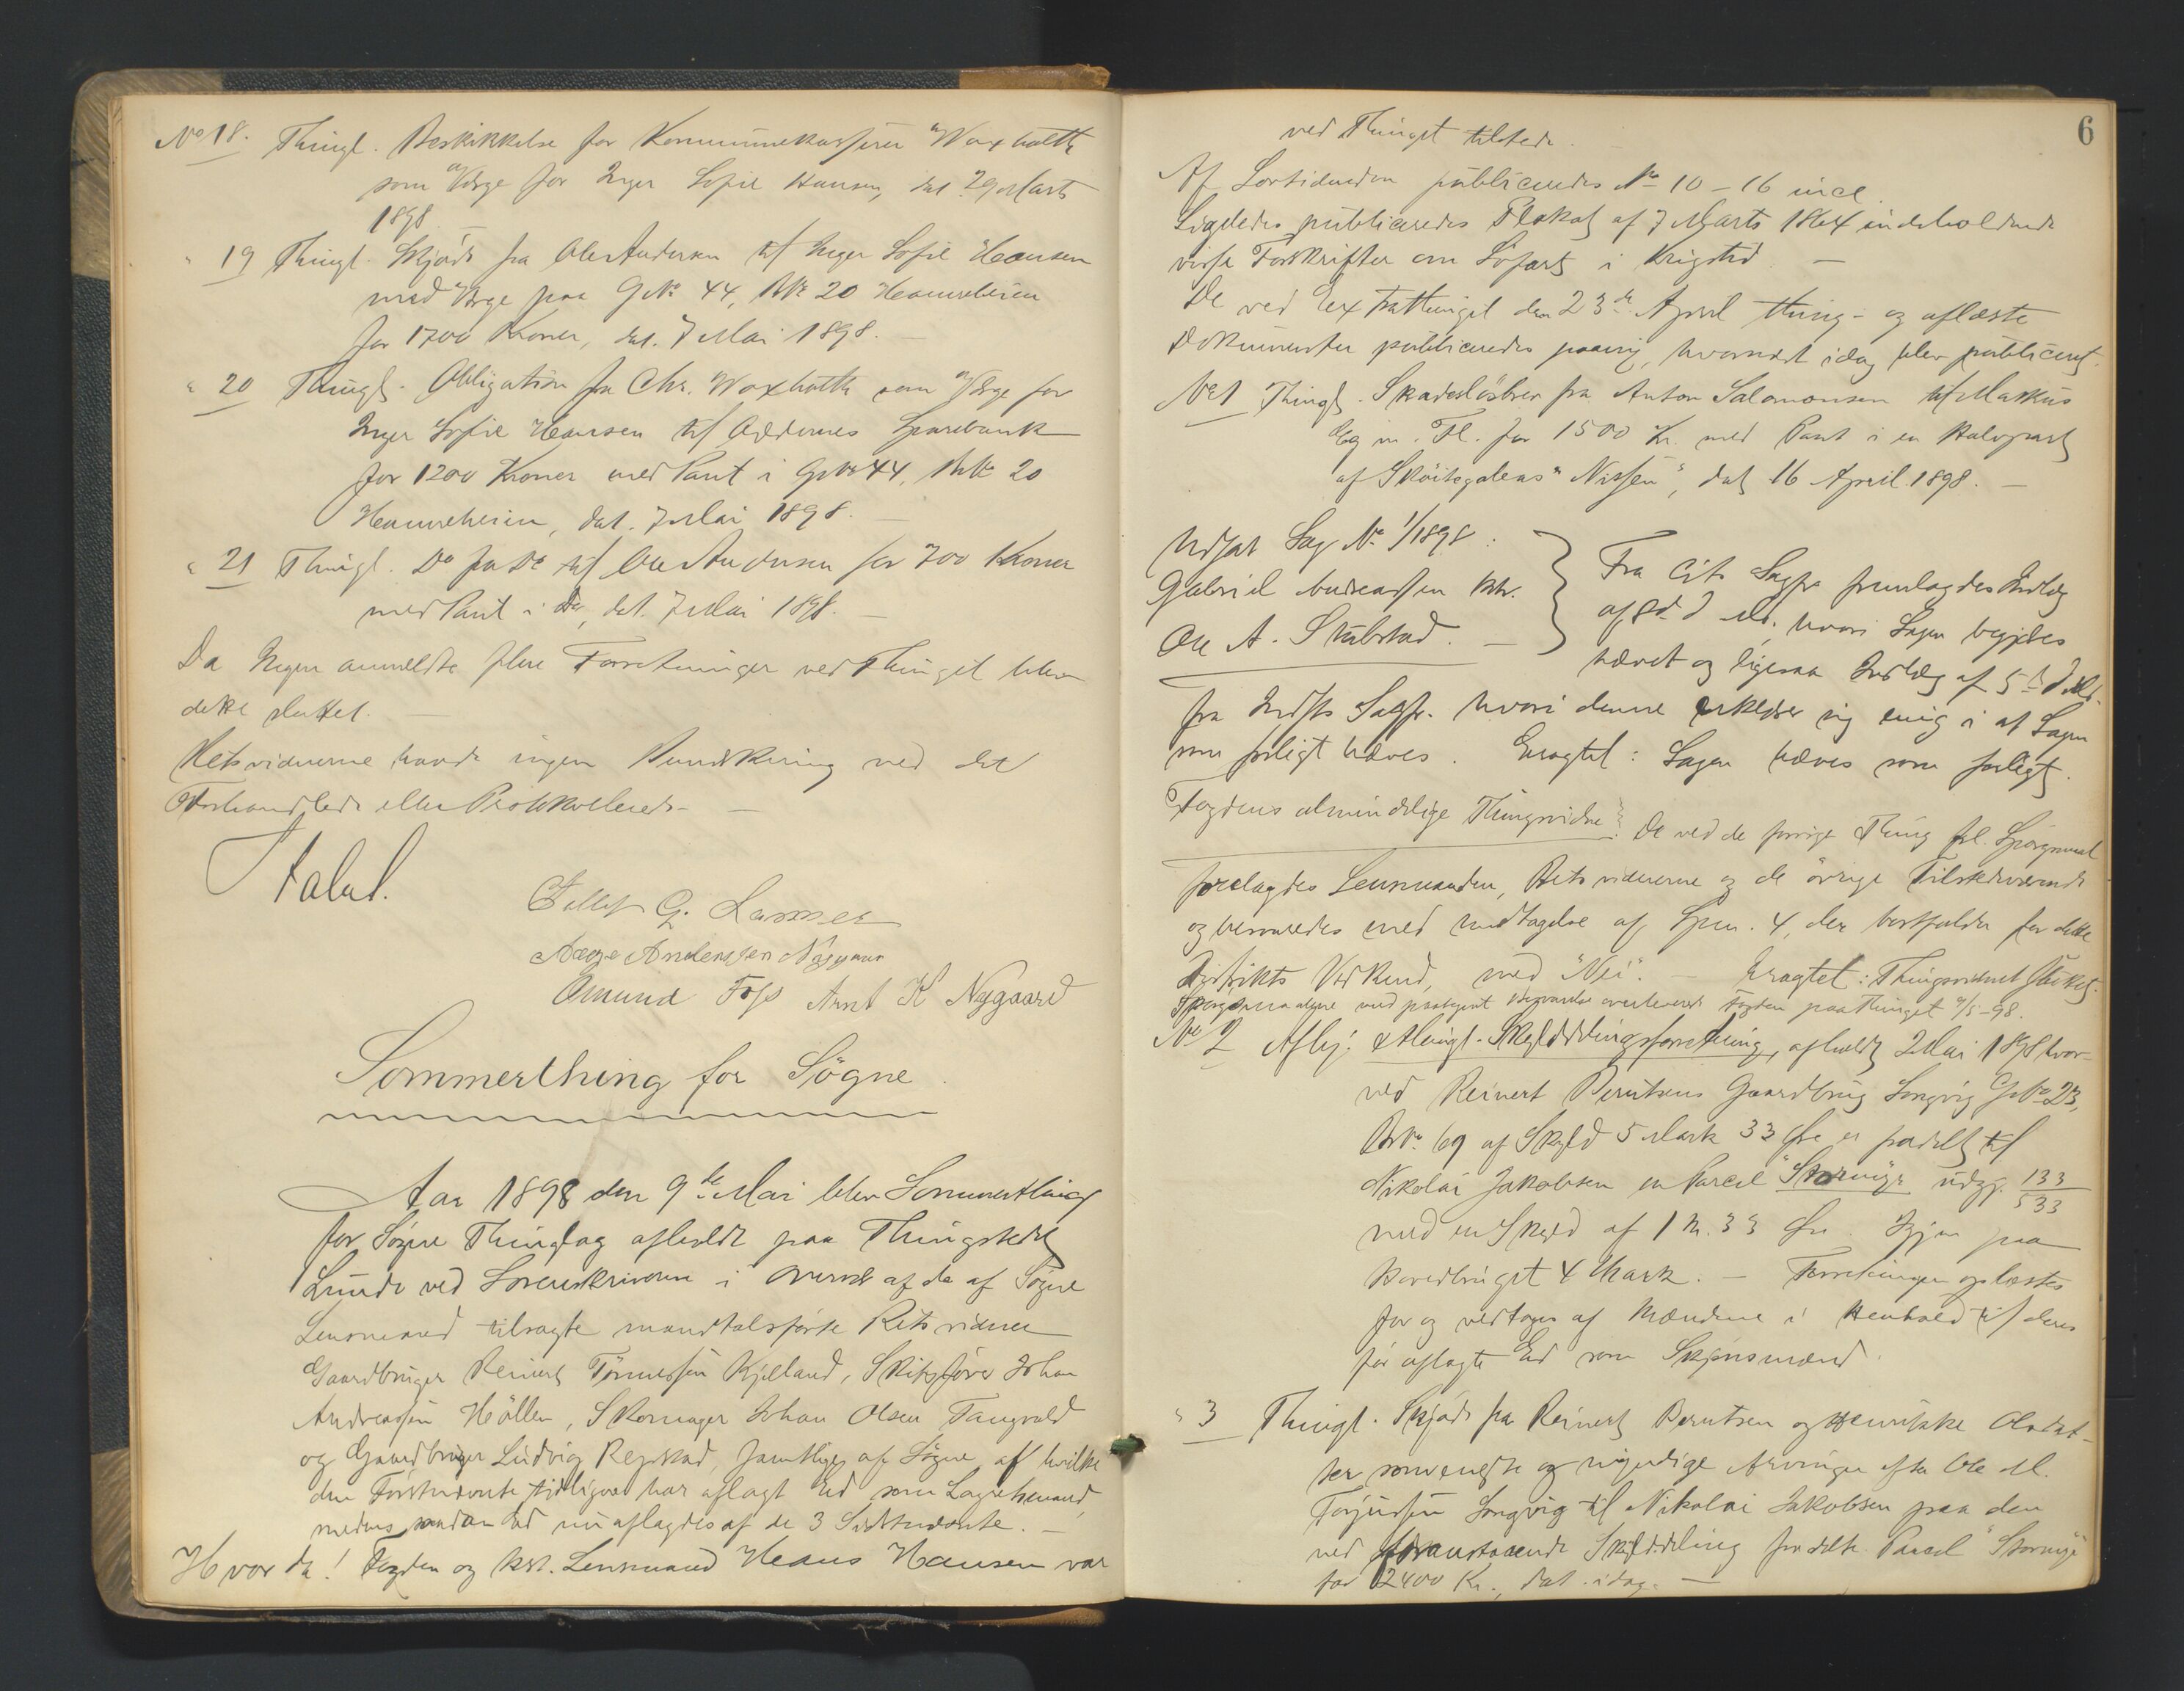 No 18. Thingl. Beskikkelse for Kommunekasserer Waxholtt
som Værge for Inger Sofie Hansen, dat 29 Marts
1898
" 19 Thingl. Skjøde fra Ole Andersen til Inger Sofie Hansen
med Værge paa GNo 44, BNo 20 Hanneheien
for 1700 Kroner, dat. 7 Mai 1898. —
" 20 Thingl. Obligation fra Chr. Waxholtt som Værge for
Inger Sofie Hansen til Oddernes Sparebank
for 1200 Kroner med Pant i GNo 44, BNo 20
Hanneheien, dat. 7 Mai 1898. —
" 21 Thingl. Do fra Do til Ole Andersen for 700 Kroner
med Pant i Do, dat. 7 Mai 1898. —
Da Ingen anmeldte flere Forretninger ved Thinget blev
dette sluttet. —
Retsvidnerne havde ingen Bemærkning ved det
Forhandlede eller Protokollerede. —
Stabel.
G. Larsen
Aage Anderssen Nygaard
Omund Foss Arnt K Nygaard
Sommerthing for Sögne.
Aar 1898 den 9de Mai blev Sommerthing
for Sögne Thinglag afholdt paa Thingstedet
Lunde ved Sorenskriveren i Overvær af de af Sögne
Lensmand tilsagte mandtalsførte Retsvidner
Gaardbruger Reinert Tönnessen Kjelland, Skibsfører Johan
Andreassen Höllen, Skomager Johan Olsen Tangvald
og Gaardbruger Ludvig Repstad, samtlige af Sögne, af hvilke
den Förstnævnte tidligere har aflagt Ed som Lagrettemand,
medens saadan Ed nu aflagdes af de 3 Sidstnævnte. —
Hvor da! Fogden og kst. Lensmand Hans Hansen var
6
ved Thinget tilstede.
Af Lovtidenden publiceredes No 10 – 16 incl.
Ligeledes publiceredes Plakat af 7 Marts 1864 indeholdende
visse Forskrifter om Söfart i Krigstid. —
De ved Extrathinget den 23de April thing- og aflæste
Dokumenter publiceredes paany, hvornæst idag blev publiceret.
No 1 Thingl. Skadeslösbrev fra Anton Salomonsen til Markus
Eeg m. Fl. for 1500 Kr. med Pant i en Halvpart
af Sköitegaleas "Nissen", dat 16 April 1898. —
Udsat Sag No 1/1898:
Gabriel Andreassen ktr.
Ole A. Stubstad. —
Fra Cits Sagfr fremlagdes Indlæg
af 2d d. Md., hvori Sagen begjæres
hævet og ligesaa Indlæg af 5te d. Md.
fra Indsts Sagfr. hvori denne erklærer sig enig i at Sagen
som forligt hæves. Eragtet: Sagen hæves som forligt.
Fogdens almindelige Thingsvidne: De ved de forrige Thing frl. Spörgsmaal
forelagdes Lensmanden, Retsvidnerne og de övrige Tilstedeværende
og besvaredes med Undtagelse af Spm. 4, der bortfalder for dette
Distrikts Vedkend, med "Nei". — Eragtet: Thingsvidnet sluttet.
Spörgsmaalene med paategnet Besvarelse overleveredes Fogden paa Thinget 9/5-98.
No 2 Aflej. & thingl. Skylddelingsforretning, afholdt 2 Mai 1898 hvor-
ved Reinert Berntsens Gaardbrug Songvig GNo 23,
BNo 69 af Skyld 5 Mark 33 Øre er fradelt til
Nikolai Jakobsen en Parcel "Stormyr" udgj. 133/533
med en Skyld af 1 M. 33 Øre. Igjen paa
Hovedbruget 4 Mark. — Forretningen oplæstes
for og vedtoges af Mændene i Henhold til deres
før aflagte Ed som Skjönsmænd.
" 3 Thingl. Skjøde fra Reinert Berntsen og Henrikke Olsdat-
ter som eneste og myndige Arvinger efter Ole M.
Torjussen Songvig til Nikolai Jakobsen paa den
ved foranstaaende Skylddeling fradelte Parcel "Stormyr"
for 2400 Kr., dat. idag. —